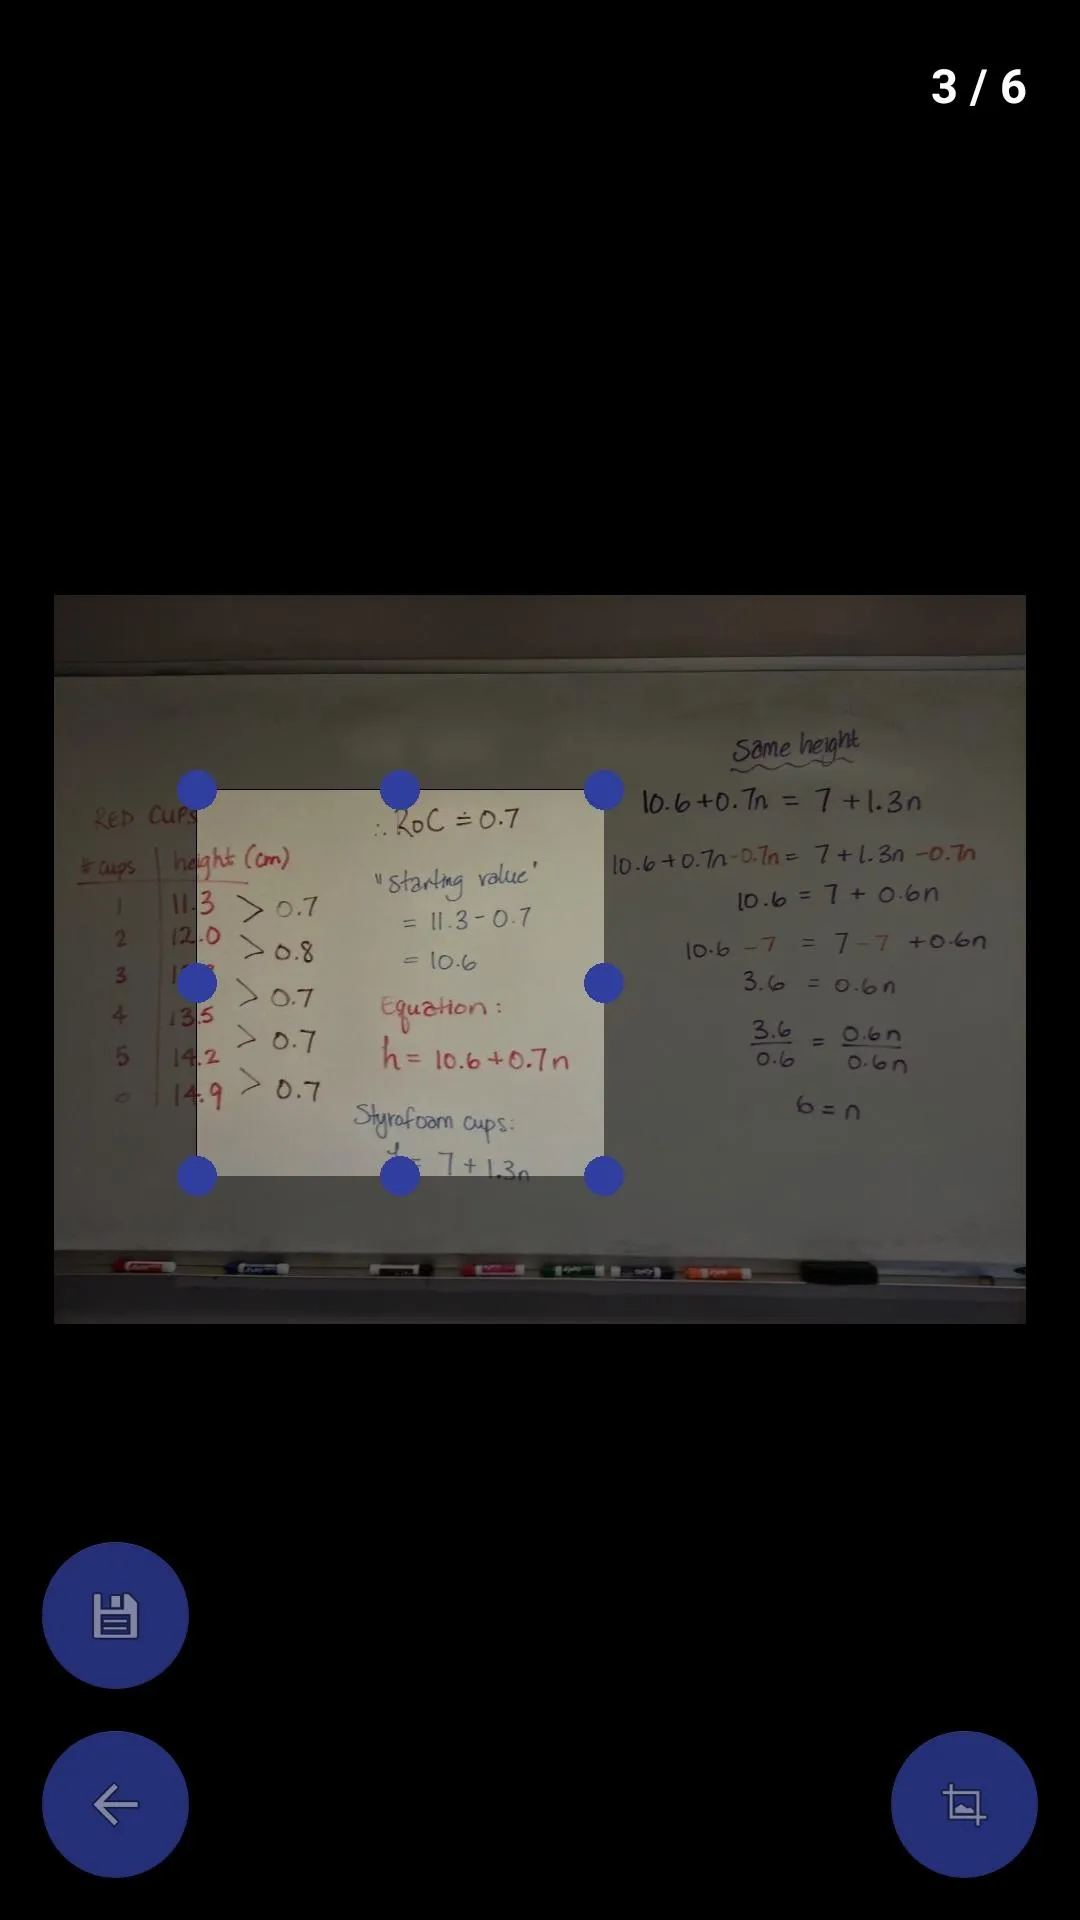 3 / 6
RED CUPS
# cups | height (cm)
1 11.3
2 12.0
3
4 13.5
5 14.2
14.9
> 0.7
> 0.8
> 0.7
> 0.7
> 0.7
∴ RoC ≐ 0.7
"Starting value"
= 11.3 - 0.7
= 10.6
Equation:
h = 10.6 + 0.7n
Styrofoam cups:
= 7 + 1.3n
Same height
10.6 + 0.7n = 7 + 1.3n
10.6 + 0.7n - 0.7n = 7 + 1.3n - 0.7n
10.6 = 7 + 0.6n
10.6 - 7 = 7 - 7 + 0.6n
3.6 = 0.6n
3.6/0.6 = 0.6n/0.6n
6 = n